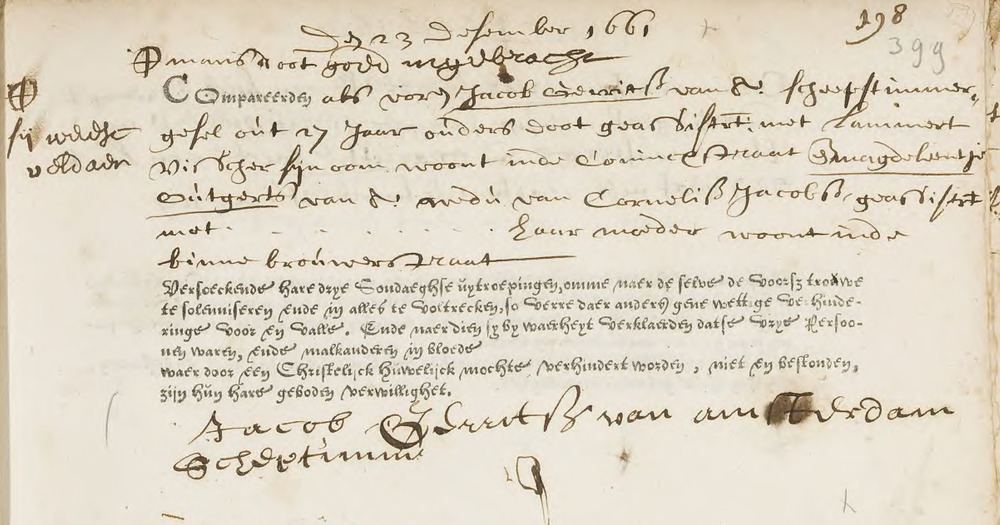 198
399
den 23 desember 1661
mans doot goed ingebracht
Compareerden als voren Jacob Gerritsz van A: scheepstimmer-
gesel out 27 Jaar ouders doot geassisteert met Lammert
Visscher sijn oom woont inde Conincxstraat & magdeleentje
Outgerts van A: wedu van Cornelis Jacobsz geassisteert
met . . . . . . . haar moeder woont inde
binne brouwerstraat
Versoeckende hare drye Sondaeghse uytroepingen, omme naer de selve de voorsz trouwe
te solemniseren ende in alles te voltrecken, so verre daer anders gene wettige verhinde-
ringe voor en valle. Ende naer dien sy by waerheyt verklaerden datse vrye Persoo-
nen waren, ende malkanderen in bloede
waer door een Christelijck huwelijck mochte verhindert worden, niet en bestonden,
zijn hun hare geboden verwillighet.
Jacob Gerritsz van amsterdam